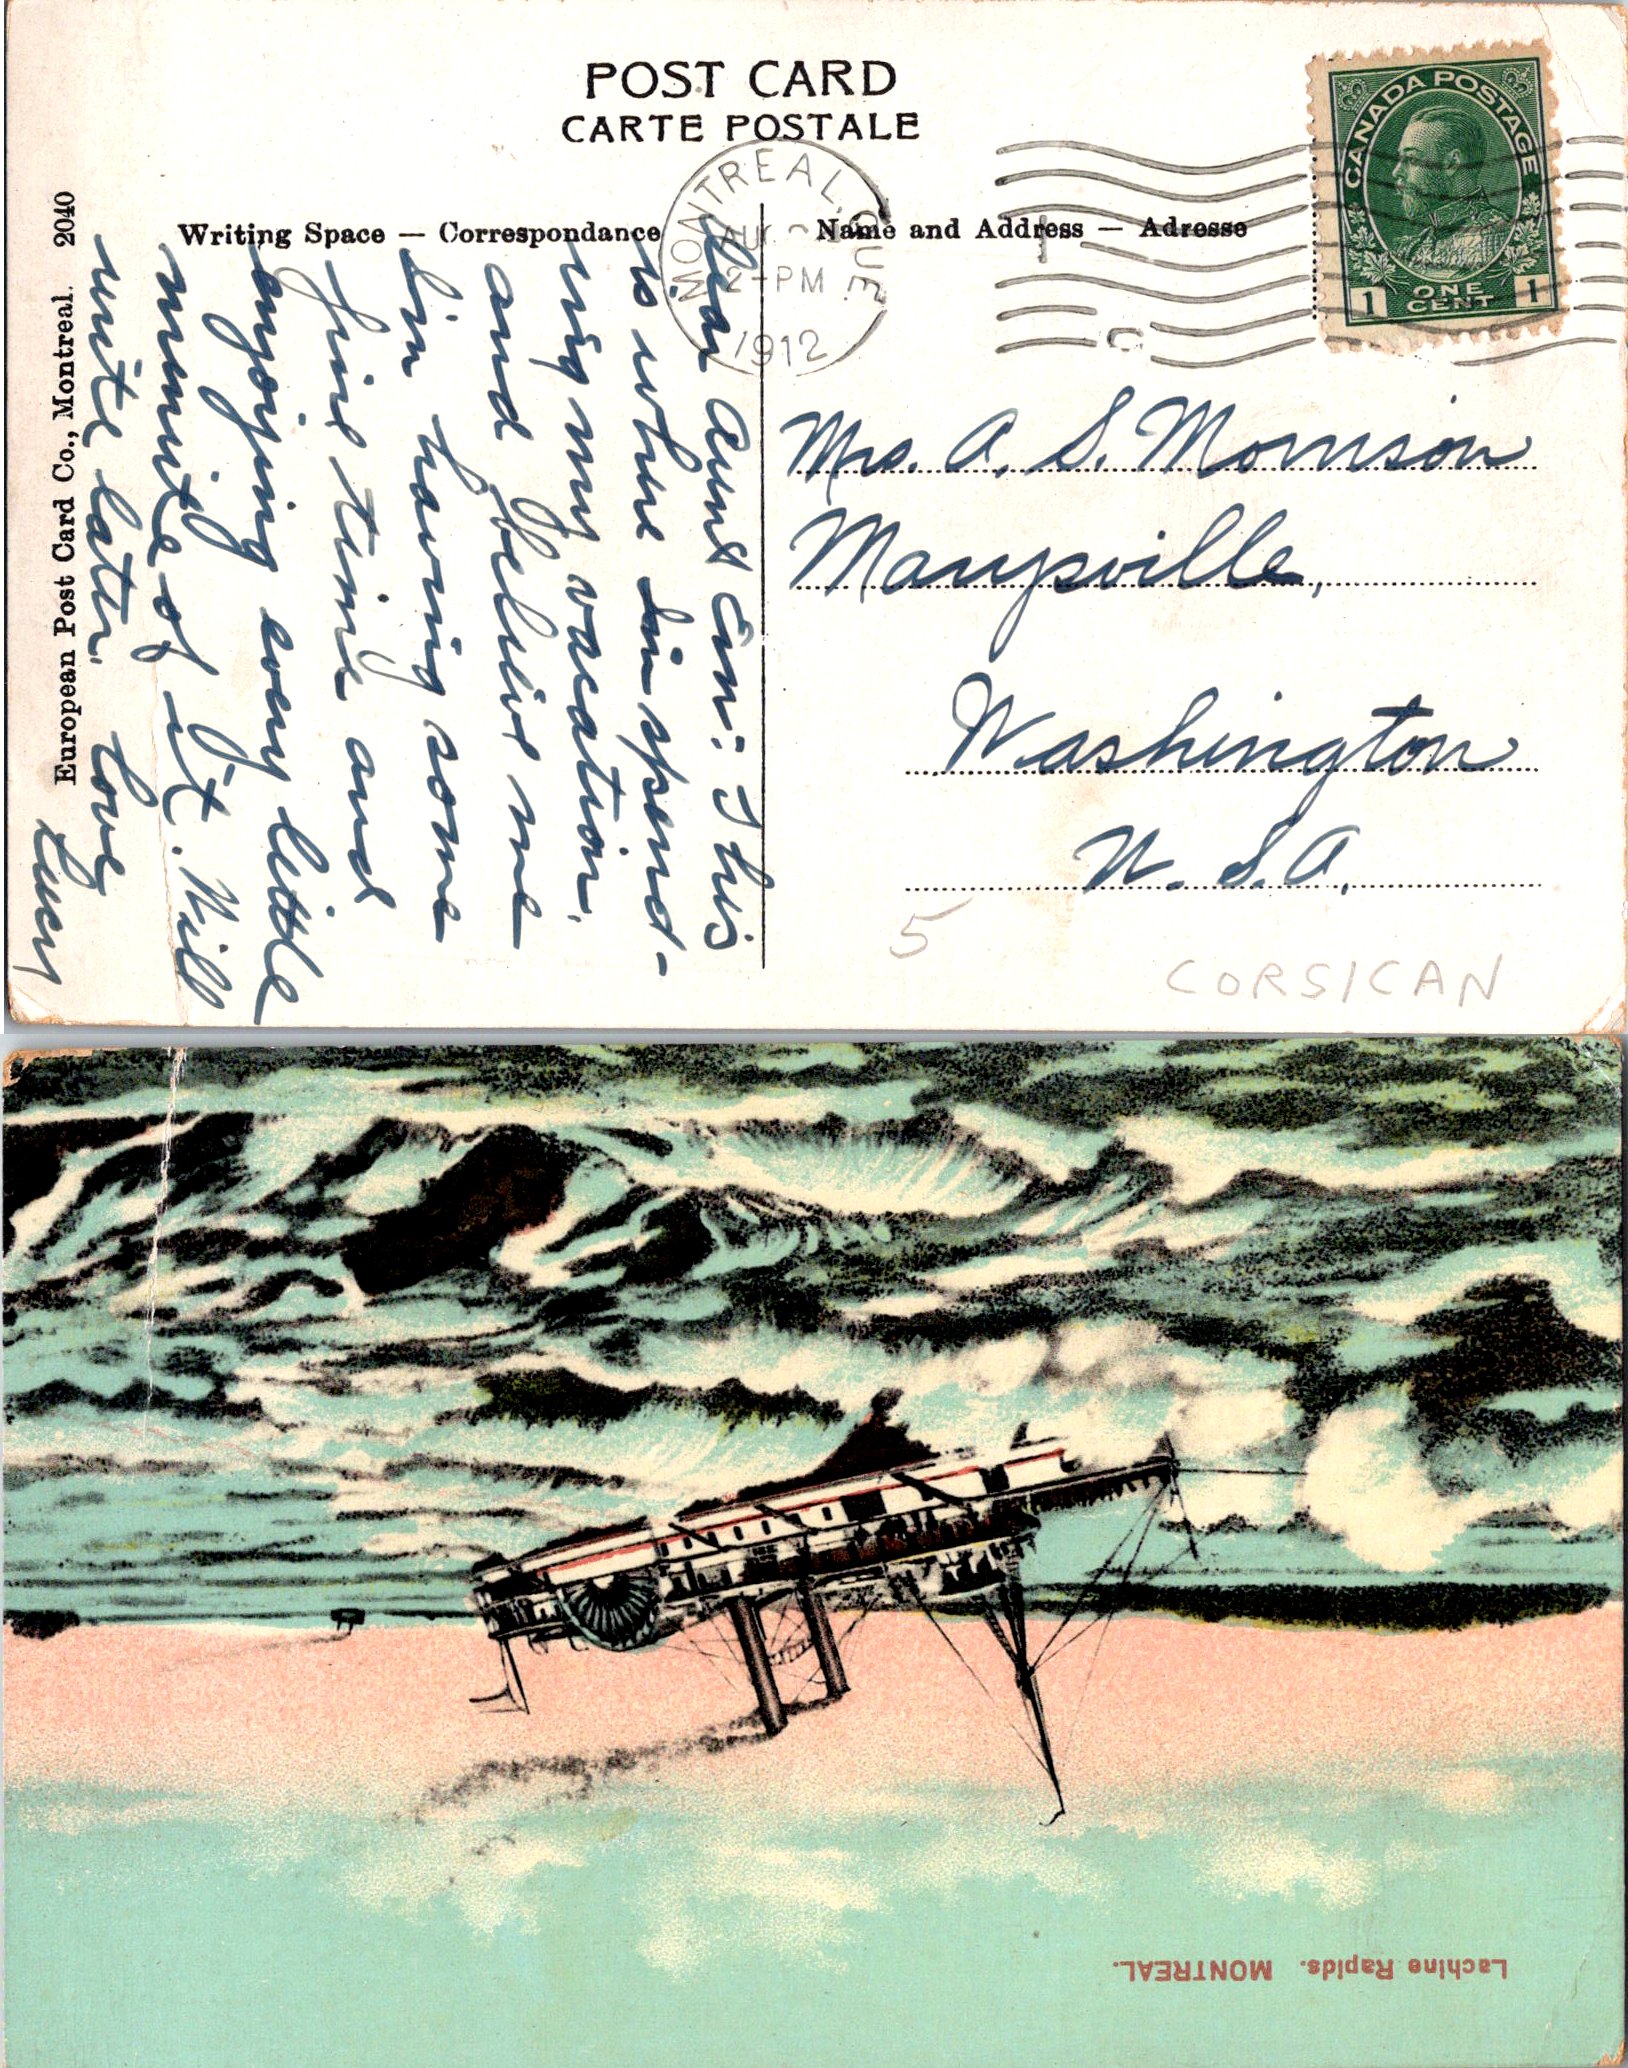 POST CARD
CARTE POSTALE
Writing Space — Correspondance
Name and Address — Adresse
MONTREAL, QUE.
2-PM
1912
CANADA POSTAGE
1 ONE CENT 1
European Post Card Co., Montreal. 2040
Dear Aunt Em: This
is where I'm spend-
ing my vacation.
and believe me
I'm having some
fine time and
enjoying every little
minute of it. Will
write later. Love
Lucy
Mrs. A. S. Morrison
Marysville,
Washington
U. S. A.
5
CORSICAN
Lachine Rapids. MONTREAL.